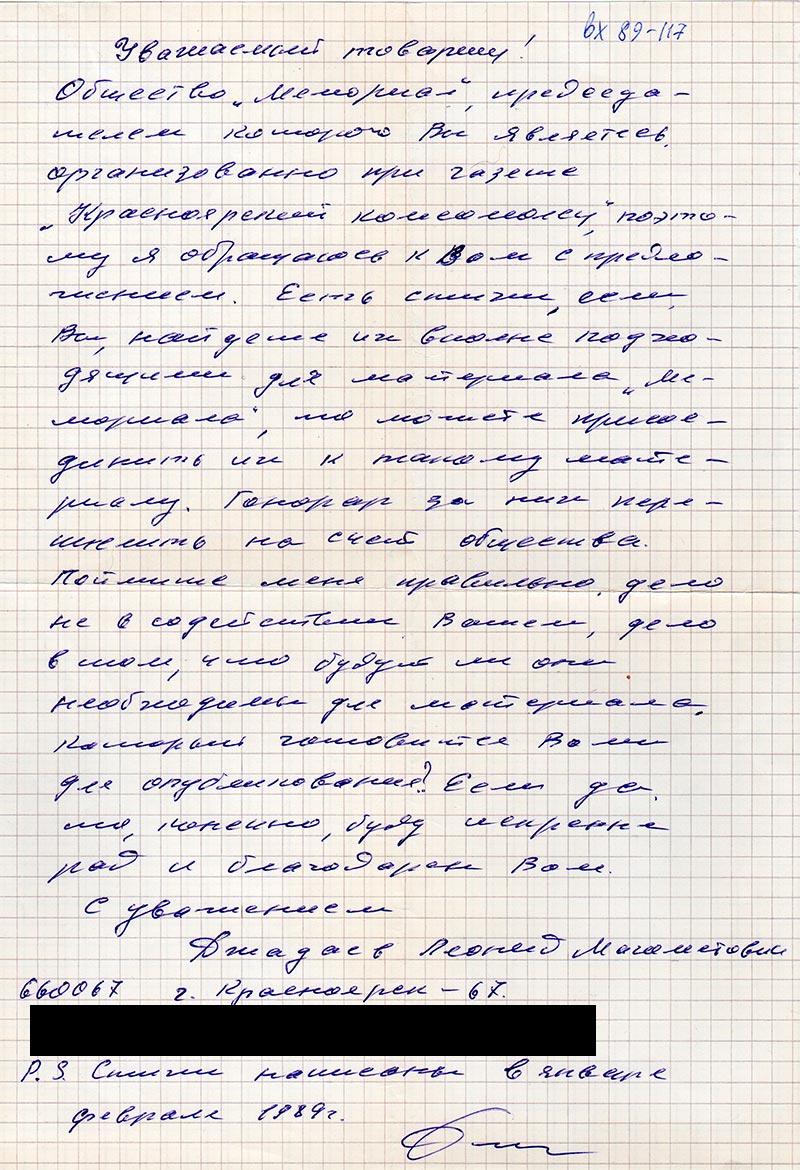 вх 89-117
Уважаемый товарищ!
Общество „Мемориал", председа-
телем которого Вы являетесь,
организованно при газете
„Красноярский комсомолец", поэто-
му я обращаюсь к Вам с предло-
жением. Есть стихи, если,
Вы, найдете их вполне подхо-
дящими для материала „Ме-
мориала", то можете присое-
динить их к такому мате-
риалу. Гонорар за них пере-
числить на счет общества.
Поймите меня правильно, дело
не в содействии Вашем, дело
в том, что будут ли они
необходимы для материала,
который готовится Вами
для опубликования? Если да,
то, конечно, буду искренне
рад и благодарен Вам.
С уважением
Джадаев Леонид Магометович
660067 г. Красноярск-67.
P.S. Стихи написаны в январе
феврале 1989г.